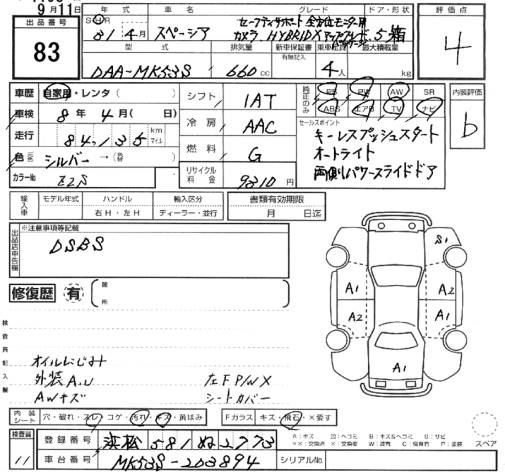 9月11日
出品番号
83
年式 車名 グレード ドア・形状
31 4月 スペーシア
セーフティサポート 全方位モニター用
カメラ HYBRIDX 5 箱
型式 排気量 新車保証書 乗車定員 最大積載量
有無記入
DAA-MK53S 660cc 4人 kg
評価点
4
内装評価
b
車歴 自家用・レンタ ( )
車検 8年4月( 日)
走行 84,135 km マイル
色 シルバー →( )
カラーNo. ZZS
シフト 1AT
冷房 AAC
燃料 G
リサイクル料金 9310円
純正のみ
PS PW AW SR
ABS エアB TV ナビ
セールスポイント
キーレスプッシュスタート
オートライト
両側パワースライドドア
輸入車 モデル年式 ハンドル 輸入区分
右H・左H ディーラー・並行
書類有効期限
月 日迄
出品店申告欄
※注意事項等記載
DSBS
修復歴 有
箇所
検査員記入欄
オイルにじみ
外装A.U
AWキズ
左FPWX
シートカバー
S1
A1 A2
A2 A1
A1
内装シート 穴・破れ・スレ コゲ・汚れ・キズ・黄ばみ Fガラス キズ・飛石・×要す
スペア
検査員 11
登録番号 浜松 581 ぬ 2773
車台番号 MK53S-203894 シリアルNo.